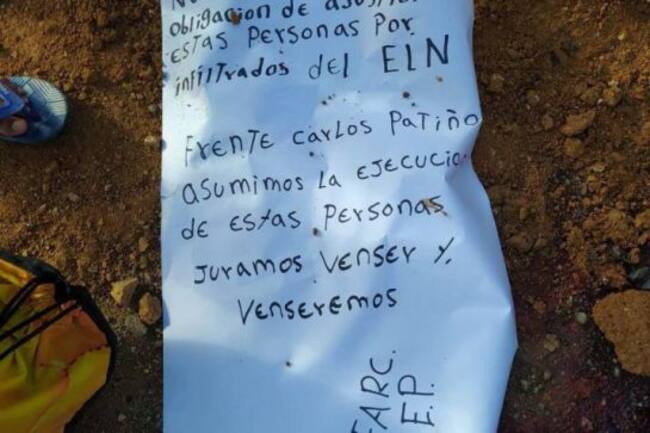 obligacion de
estas Personas Por
infiltrados del ELN
Frente Carlos Patiño
asumimos la ejecucio
de estas Personas
Juramos venser y,
venseremos
FARC.
E.P.